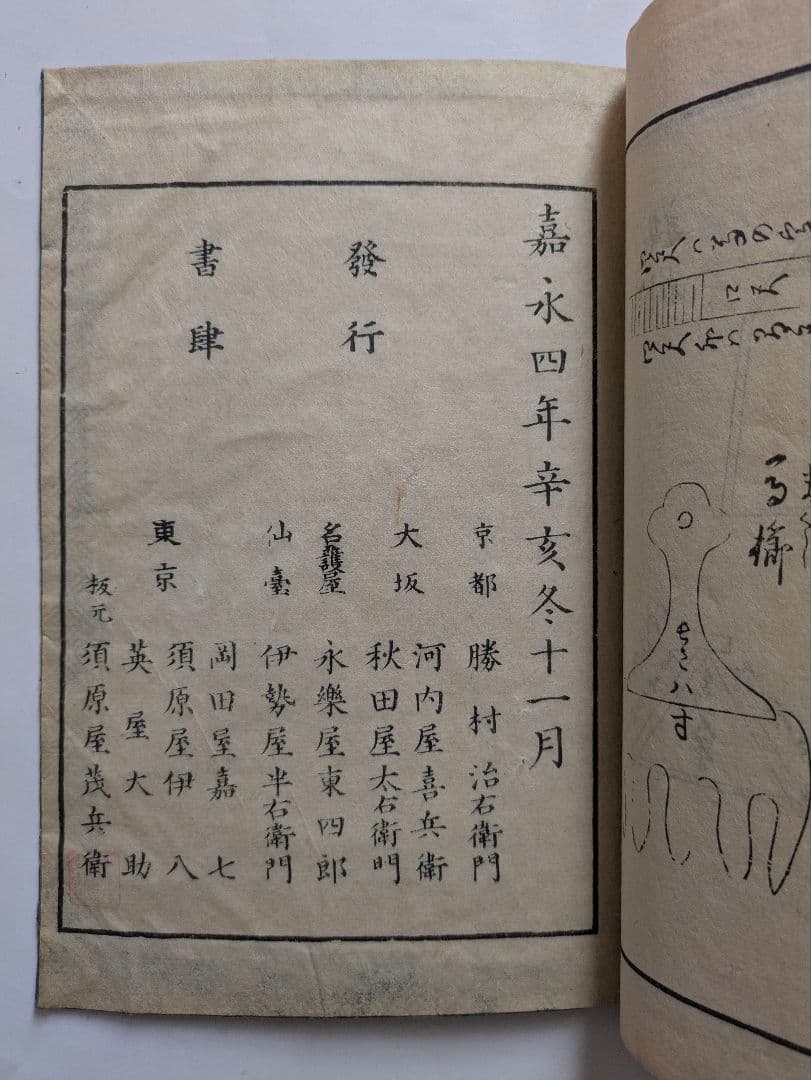 嘉永四年辛亥冬十一月
發行
書肆
京都 勝村治右衛門
大坂 河内屋喜兵衛
秋田屋太右衛門
名護屋 永樂屋東四郎
仙臺 伊勢屋半右衛門
東京 岡田屋嘉七
須原屋伊八
英屋大助
板元 須原屋茂兵衛
馬櫛